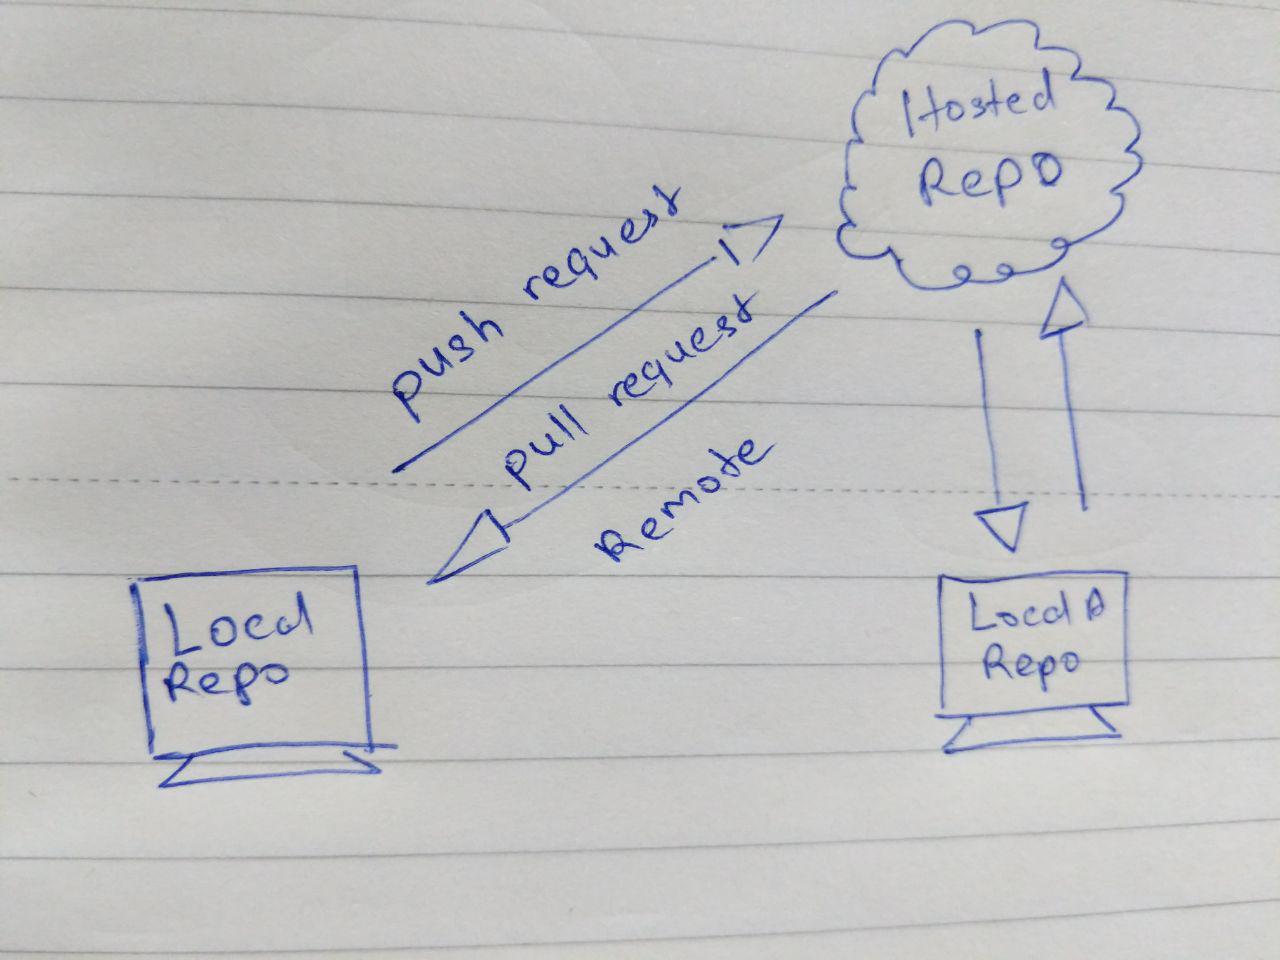 Hosted
Repo
push request
pull request
Remote
Local
Repo
Local A
Repo